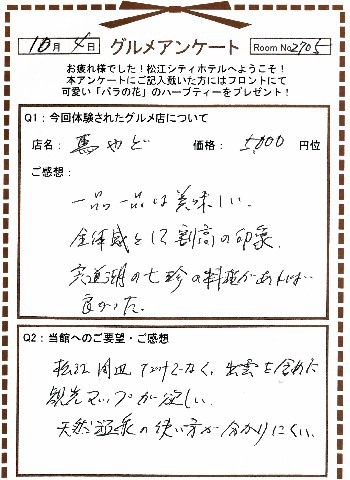 10月 4日 グルメアンケート Room No 2705
お疲れ様でした！松江シティホテルへようこそ！
本アンケートにご記入戴いた方にはフロントにて
可愛い「バラの花」のハーブティーをプレゼント！
Q1：今回体験されたグルメ店について
店名： やど 価格： 5,000 円位
ご感想：
一品一品は美味しい。
全体感として割高の印象。
宍道湖の七珍の料理があれば
良かった。
Q2：当館へのご要望・ご感想
松江周辺だけでなく、出雲を含めた
観光マップが欲しい。
天然温泉の使い方が分かりにくい。